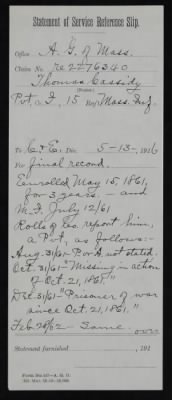 Statement of Service Reference Slip.
Office A. G. of Mass.
Claim No. re 2276340
Thomas Cassidy
(Name)
Pvt, a. I, 15 Reg't Mass. Inf.
To C. & E. Div. 5-13-, 1916
For final record.
Enrolled May 15, 1861,
for 3 years. - and
M. I. July 12/61
Rolls of Co. report him,
a Pvt, as follows:-
Aug. 31/61- P. or A. not stated.
Oct. 31/61- "Missing in action
of Oct. 21, 1861."
Dec. 31/61- "Prisoner of war
since Oct. 21, 1861."
Feb 28/62- Same. over
Statement furnished , 191